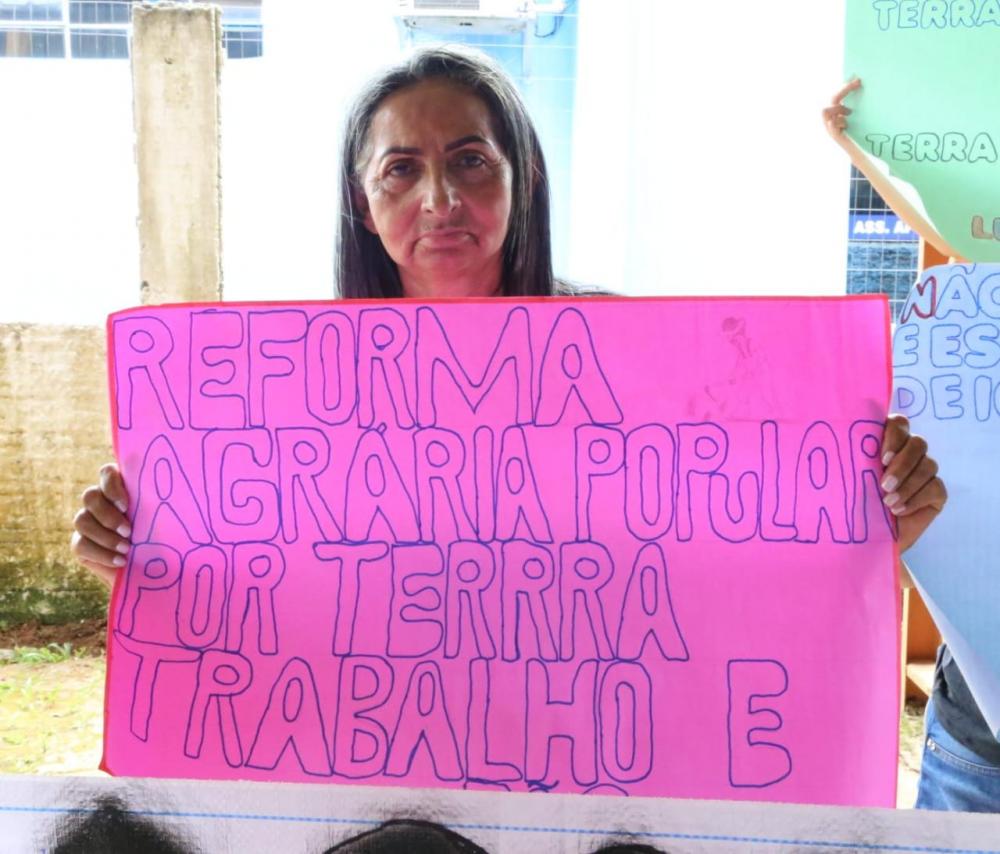 REFORMA
AGRÁRIA POPULAR
POR TERRRA
TRABALHO E
TERRA
TERRA
ASS.